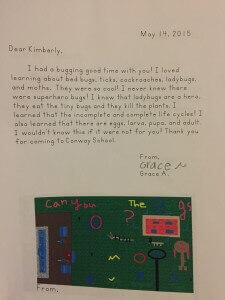 May 14, 2015
Dear Kimberly,
I had a bugging good time with you! I loved
learning about bed bugs, ticks, cockroaches, ladybugs,
and moths. They were so cool! I never knew there
were superhero bugs! I know that ladybugs are a hero.
They eat the tiny bugs and they kill the plants. I
learned that the incomplete and complete life cycles! I
also learned that there are eggs, larva, pupa, and adult.
I wouldn't know this if it were not for you! Thank you
for coming to Conway School.
From,
Grace
Grace A.
Can you The
?
From,